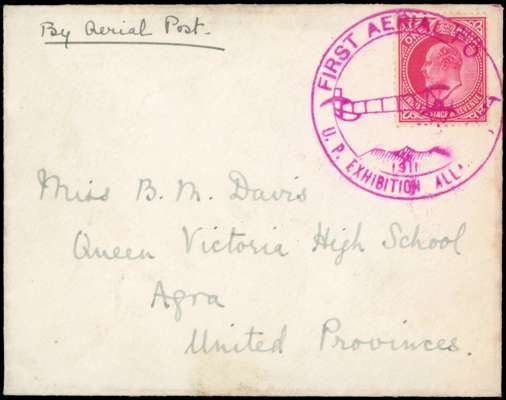 By Aerial Post.
FIRST AERIAL PO
1911
U.P. EXHIBITION ALL
POSTAGE & REVENUE
Miss B. M. Davis
Queen Victoria High School
Agra
United Provinces.